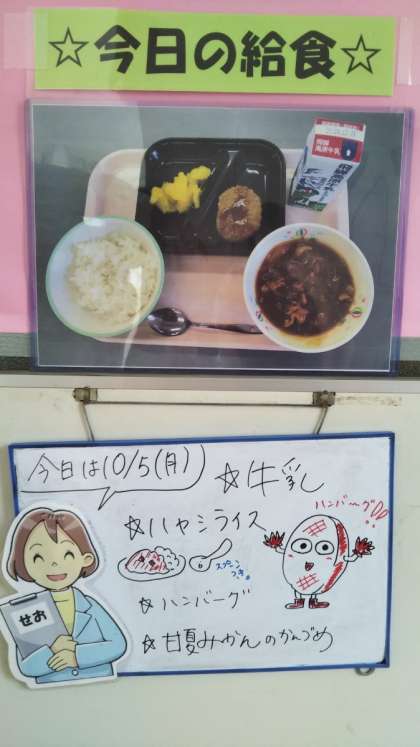 ☆今日の給食☆
今日は10/5(月)
☆牛乳
☆ハヤシライス
スプーン
つき。
ハンバーグ!!
☆ハンバーグ
☆甘夏みかんのかんづめ
せお